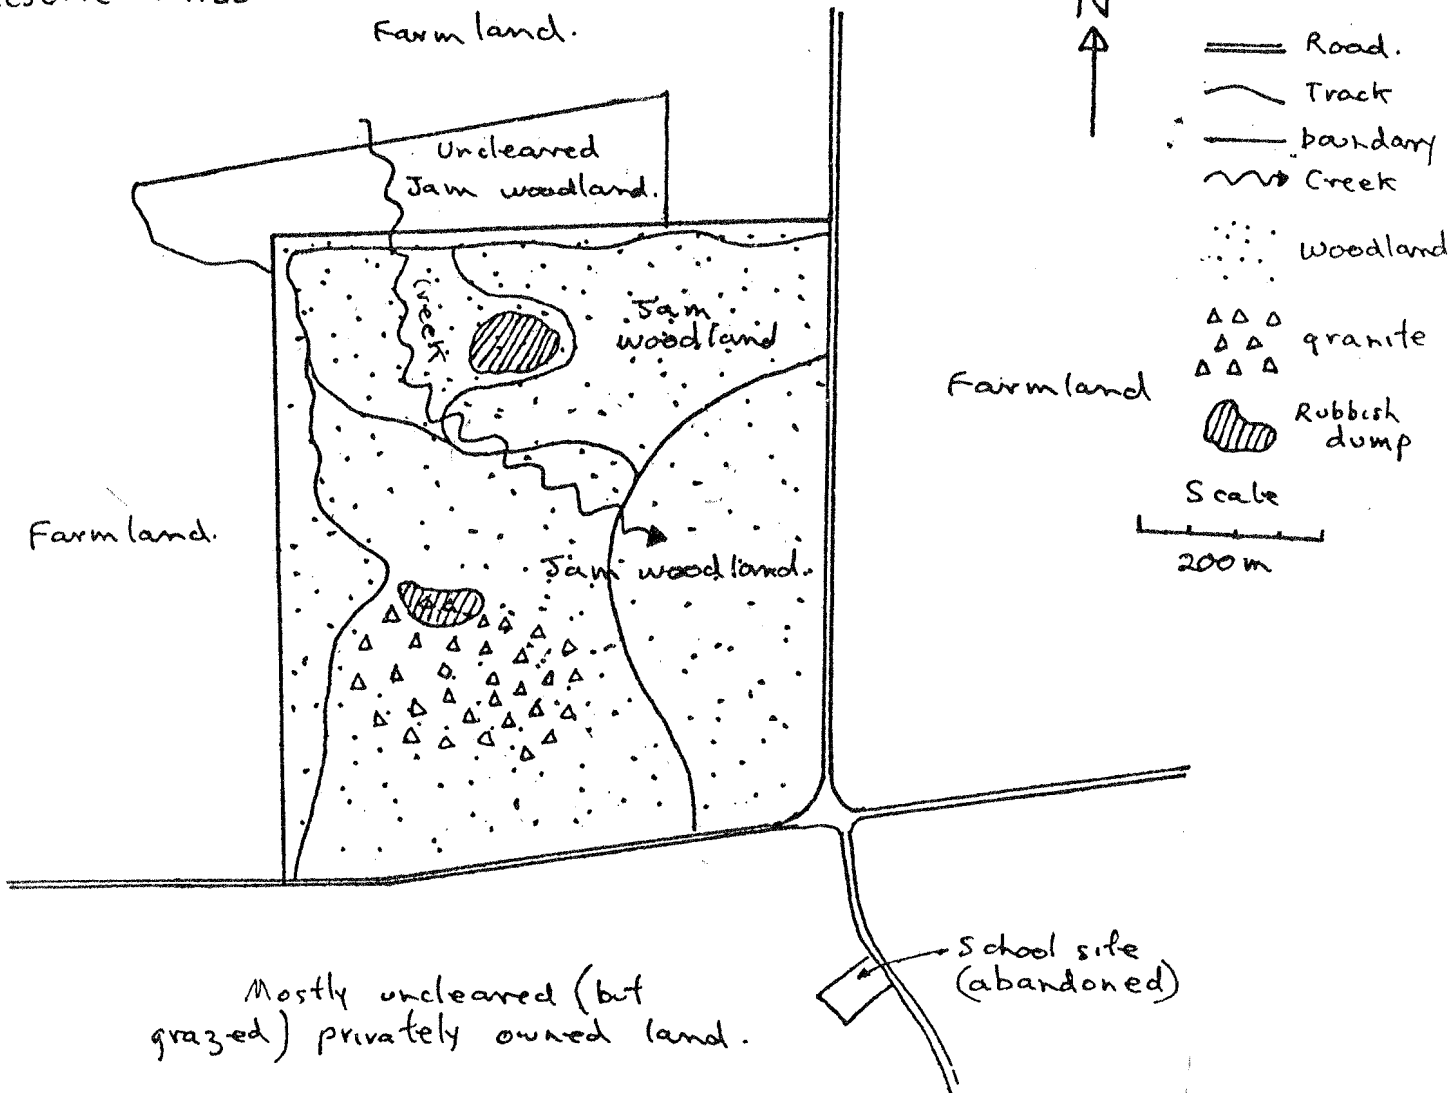 Farmland.
N
Road.
Track
boundary
Creek
Woodland
granite
Rubbish
dump
Scale
200m
Uncleared
Jam woodland.
Creek
Jam
woodland
Farmland
Farmland.
Jam woodland.
School site
(abandoned)
Mostly uncleared (but
grazed) privately owned land.